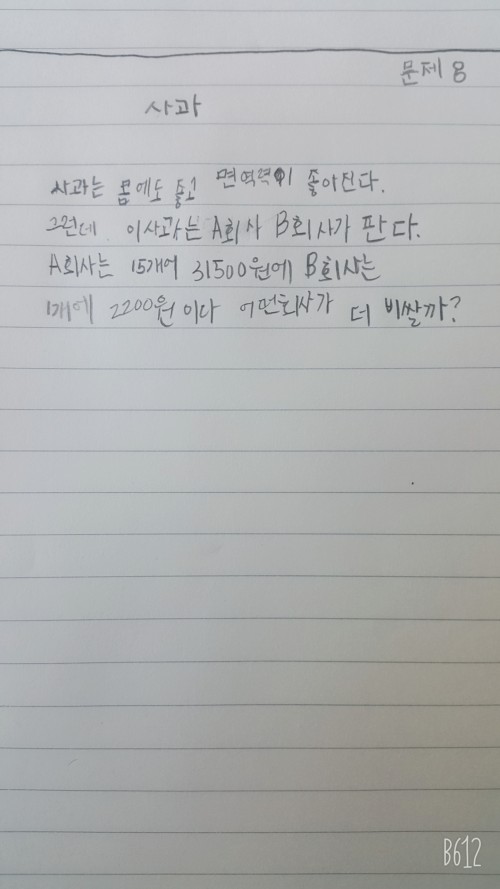 문제 8
사과
사과는 몸에도 좋고 면역력이 좋아진다.
그런데 이사과는 A회사 B회사가 판다.
A회사는 15개에 31500원에 B회사는
1개에 2200원 이다 어떤회사가 더 비쌀까?
B612